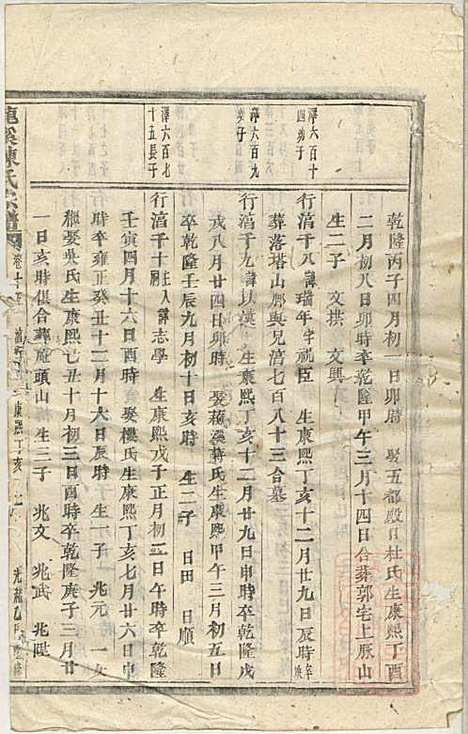 乾隆丙子四月初一日卯時 娶五都殿口杜氏生康熙丁酉
二月初八日卯時卒乾隆甲午三月十四日合葬郭宅上厥山
生二子 文拱 文興
澤六百十四弟子
行湻千八 諱瑞年字祝臣 生康熙丁亥十二月廿九日辰時卒
葬落塔山腳與兄湻七百八十三合墓
澤六百九弟子
行湻千九 諱扶漢 生康熙丁亥十二月廿九日申時卒乾隆戊
戌八月廿四日卯時 娶蒋氏生康熙甲午三月初五日
卒乾隆壬辰九月初十日亥時 生二子 日田 日順
澤六百七十五長子
行湻千十 諱志學 生康熙戊子正月初二日午時卒乾隆
壬寅四月十六日酉時 娶樓氏生康熙丁亥七月廿六日申
時卒雍正癸丑十二月十六日辰時 生一子 兆元 一女
繼娶吳氏生康熙己丑十月初三日酉時卒乾隆庚子三月廿
一日亥時俱合葬庵頭山 生三子 兆文 兆武 兆熙
陳氏宗譜